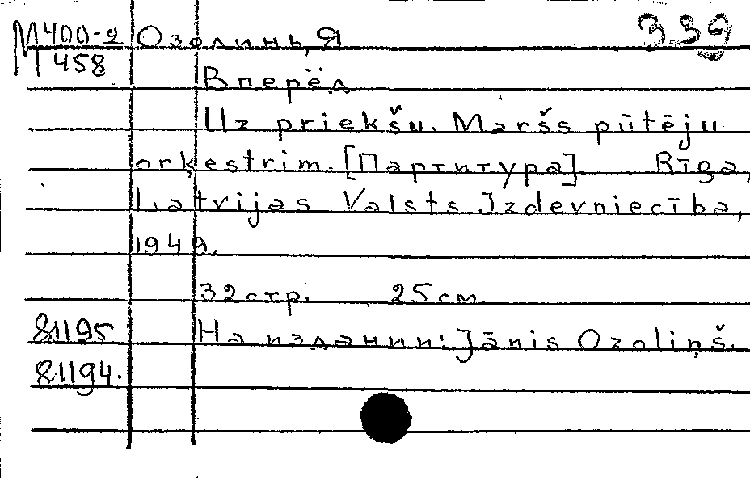 М400-2 Озолинь, Я 339
М458
Вперёд
Uz priekšu. Maršs pūtēju
orķestrim. [Партитура]. Rīga,
Latvijas Valsts Izdevniecība,
1949.
32 стр. 25 см
81195 На издании: Jānis Ozoliņš.
81194.